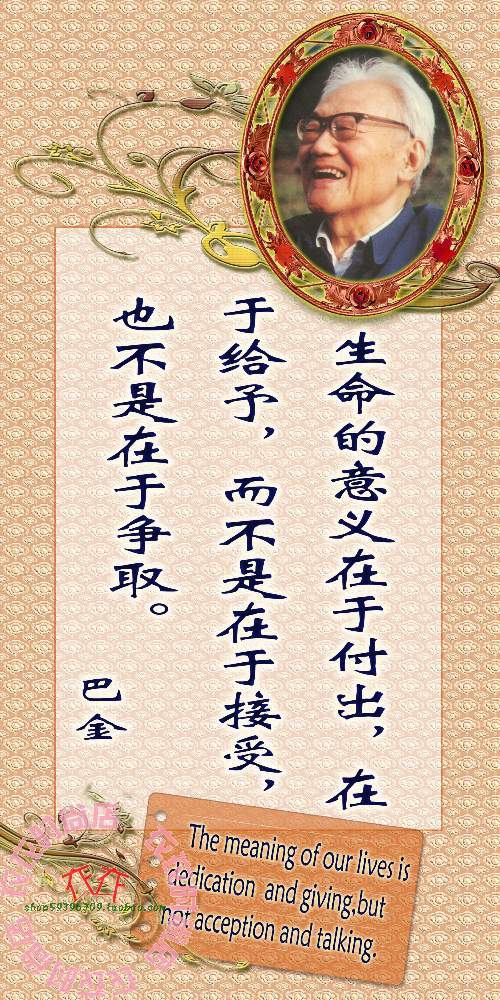 生命的意义在于付出，在
于给予，而不是在于接受，
也不是在于争取。
巴金
The meaning of our lives is
dedication and giving,but
not acception and talking.
shop59396309.taobao.com